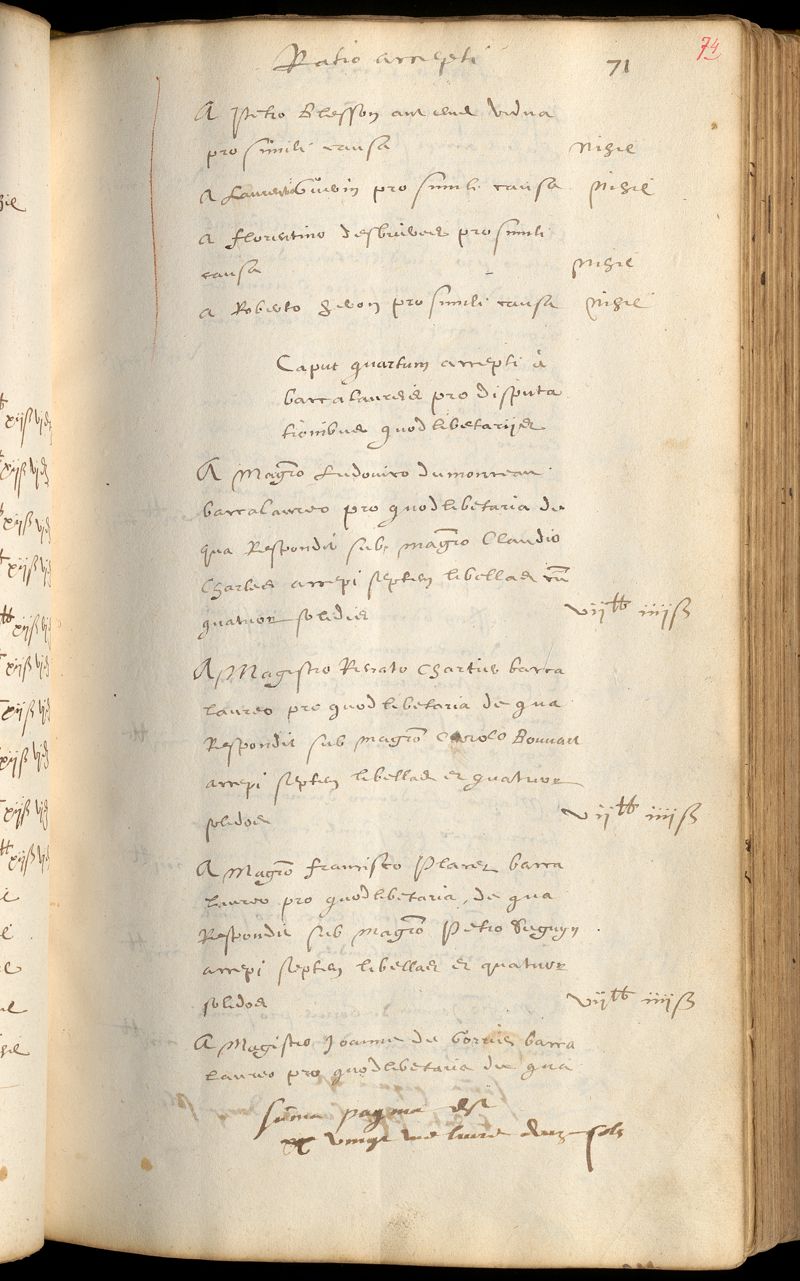 Ratio accepti 71 74
A Petro Blesson aut eius vidua
pro simili causa Nihil
A Laurentio Guerin pro simili causa Nihil
A Florentino desbruieres pro simili
causa Nihil
A Roberto heron pro simili causa Nihil
Caput quartum accepti à
baccalaureis pro disputa
tionibus quodlibetarijs
A Magro Ludovico dumonceau
baccalaureo pro quodlibetaria de
qua Respondit sub magro Claudio
Charles accepi septem libellas cū
quatuor solidis vij lb iiij ß
A Magistro Renato Chartier bacca
laureo pro quodlibetaria de qua
Respondit sub magro Carolo Bouvart
accepi septem libellas et quatuor
solidos vij lb iiij ß
A Magro francisco Placet bacca
laureo pro quodlibetaria, de qua
Respondit sub magro Petro Seguyn
accepi septem libellas et quatuor
solidos vij lb iiij ß
A Magistro Joanne de Gorris bacca
laureo pro quodlibetaria de qua
Summa paginae est
vingt une livre douz sols